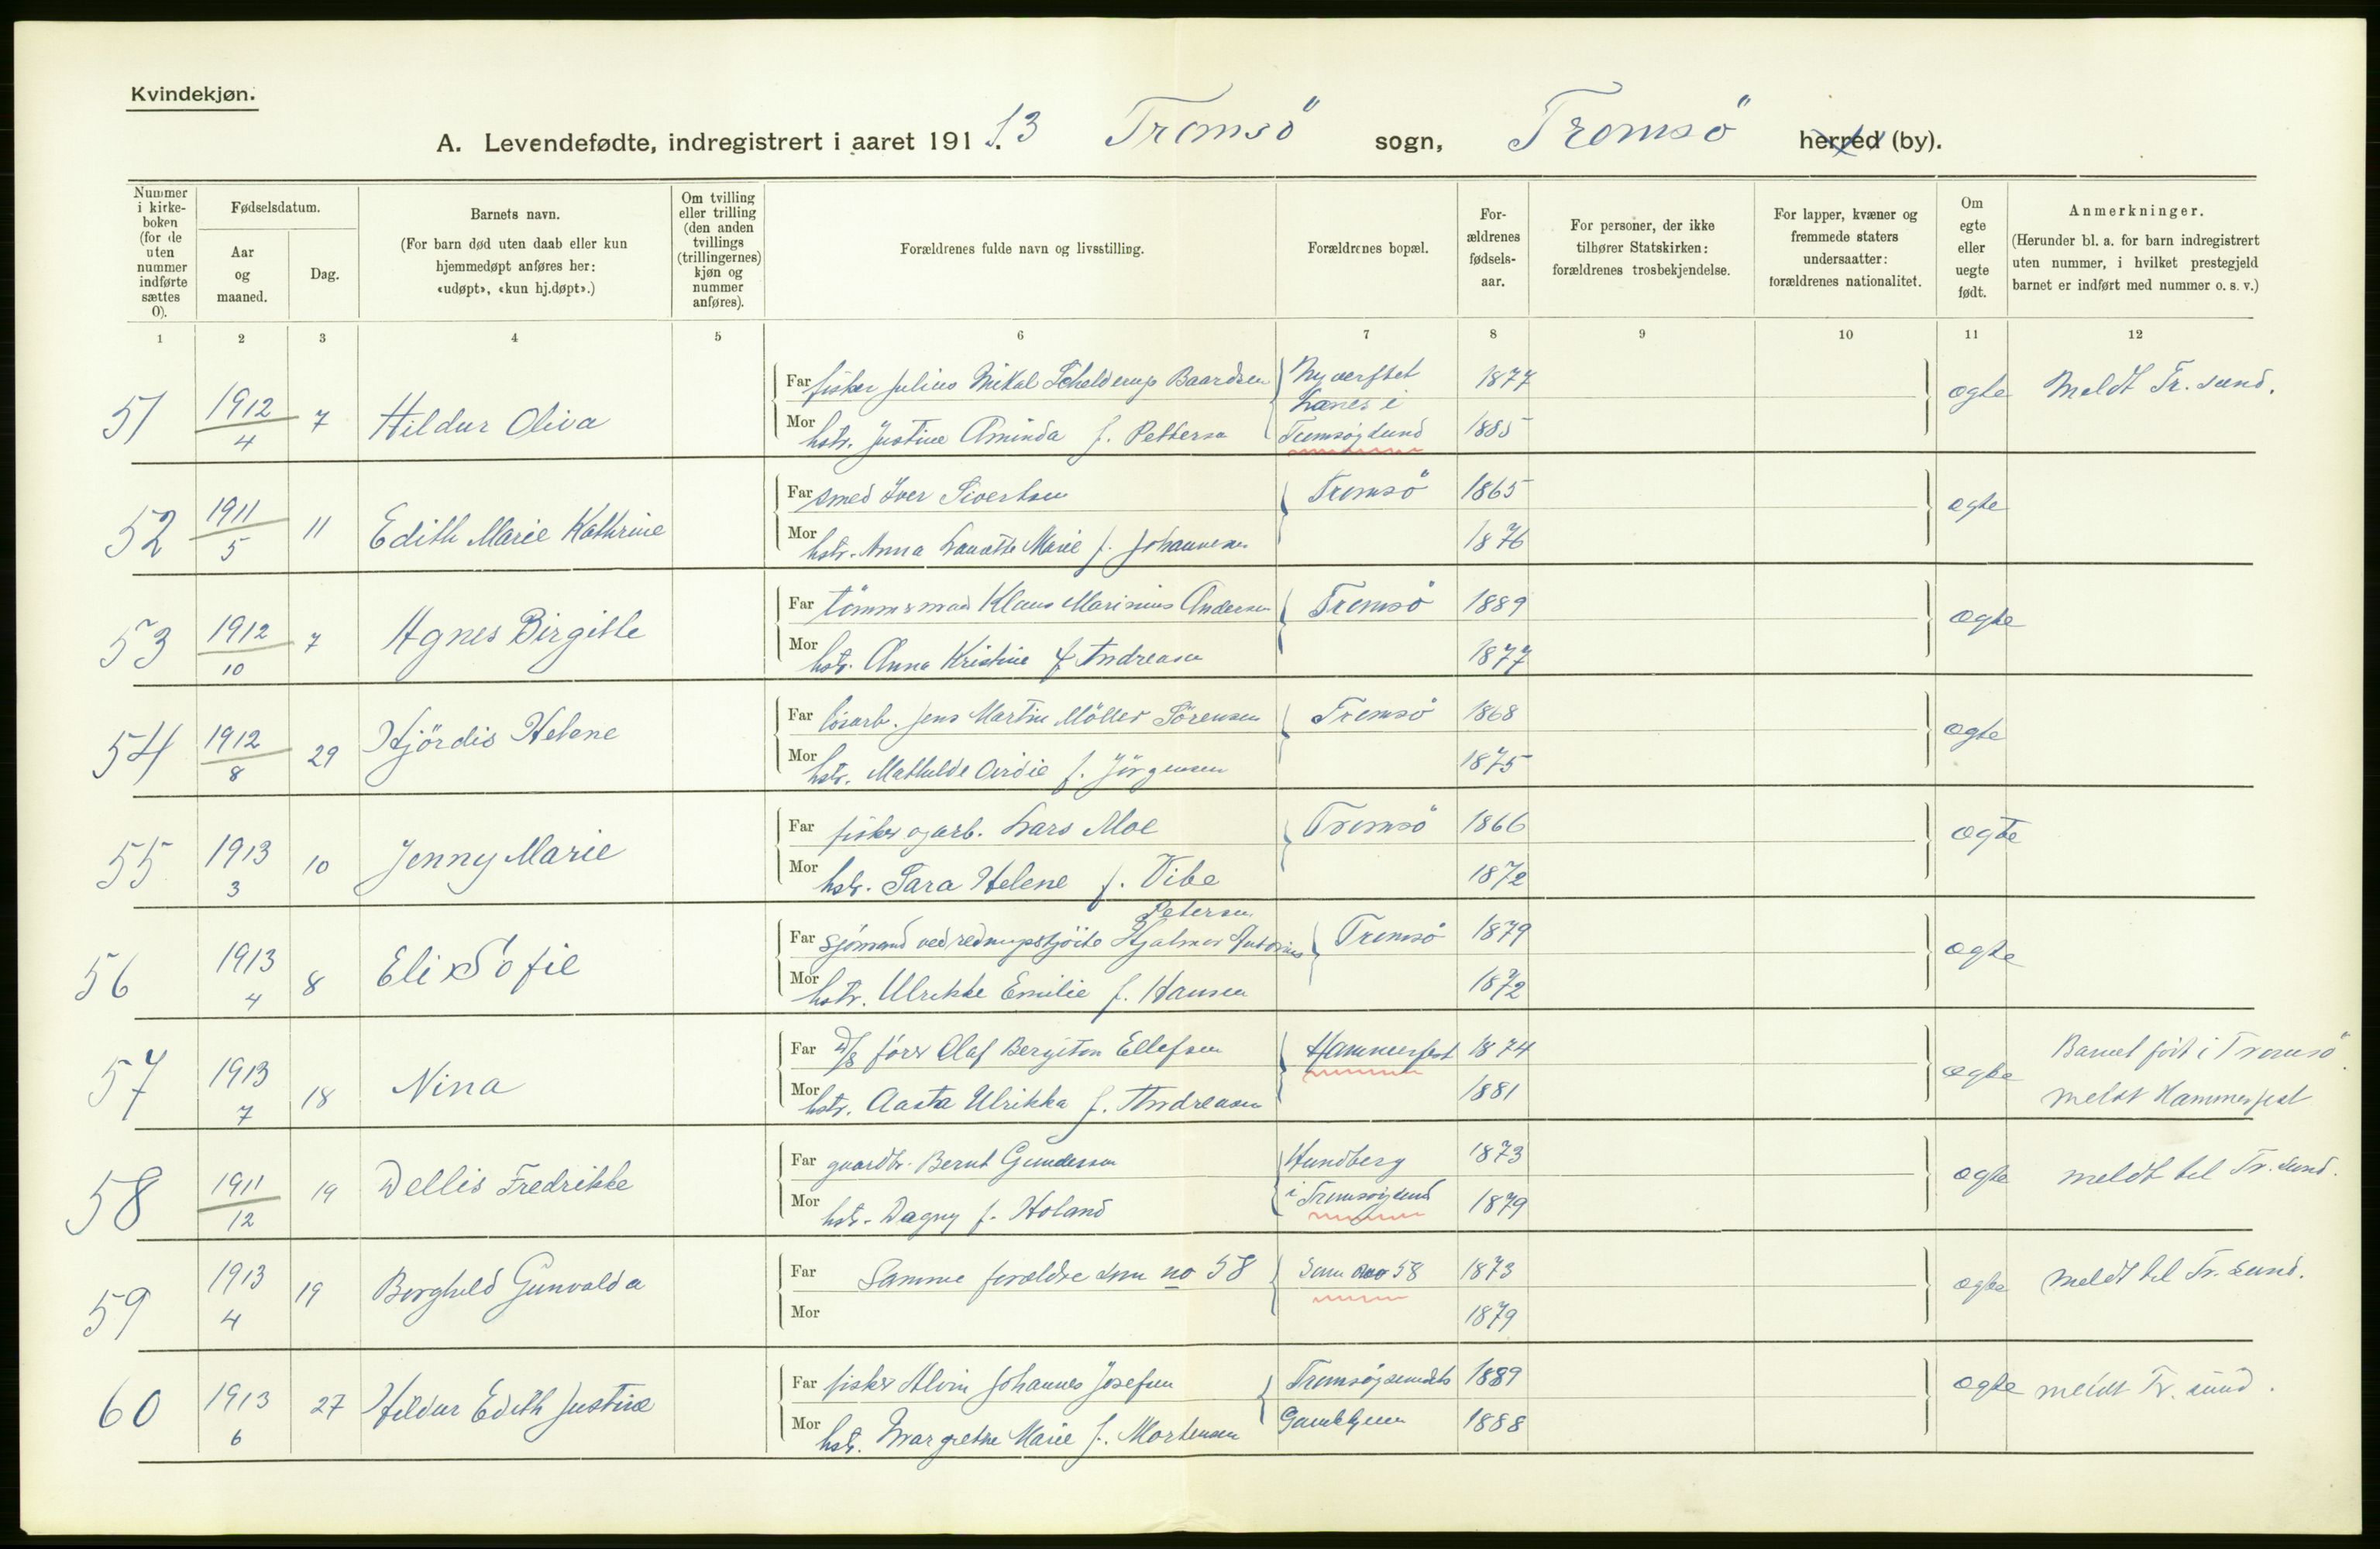 Kvindekjøn.
A. Levendefødte, indregistrert i aaret 191 13. Tromsö sogn, Tromsö herred (by).
Nummer i kirke-boken (for de uten nummer indførte sættes 0).
Fødselsdatum.
Aar og maaned.
Dag.
Barnets navn.
(For barn død uten daab eller kun hjemmedøpt anføres her: «udøpt», «kun hj.døpt».)
Om tvilling eller trilling (den anden tvillings (trillingernes) kjøn og nummer anføres).
Forældrenes fulde navn og livsstilling.
Forældrenes bopæl.
For-ældrenes fødsels-aar.
For personer, der ikke tilhører Statskirken: forældrenes trosbekjendelse.
For lapper, kvæner og fremmede staters undersaatter: forældrenes nationalitet.
Om egte eller uegte født.
Anmerkninger.
(Herunder bl. a. for barn indregistrert uten nummer, i hvilket prestegjeld barnet er indført med nummer o. s. v.)
1 2 3 4 5 6 7 8 9 10 11 12
51 1912 4 7 Hildur Oliva
Far fisker Julius Mikal Schelderup Baardsen Nyverftet 1877 ægte Meldt Tr. sund.
Kanes i
Mor hstr. Justine Aminda f. Petterse Tromsøysund 1885
52 1911 5 11 Edith Marie Kathrine
Far smed Iver Sivertsen Tromsö 1865 ægte
Mor hstr. Anna Lauretta Marie f. Johannesen 1876
53 1912 10 7 Agnes Birgitte
Far tömmermand Klaus Marinius Andersen Tromsö 1889 ægte
Mor hstr. Anna Kristine f. Andreasen 1877
54 1912 8 29 Hjördis Helene
Far lösarb. Jens Martin Möller Sörensen Tromsö 1868 ægte
Mor hstr. Mathilde f. Jörgensen 1875
55 1913 3 10 Jenny Marie
Far fisker og arb. Lars Moe Tromsö 1866 ægte
Mor hstr. Sara Helene f. Vibe 1872
56 1913 4 8 Eli Sofie
Petersen
Far sjömand ved redningsskjöite Hjalmar Antonius Tromsö 1879 ægte
Mor hstr. Ulrikke Emilie f. Hansen 1872
57 1913 7 18 Nina
Far D/S förer Olaf Bergiton Ellefsen Hammerfest 1874 ægte Barnet född i Tromsö.
Mor hstr. Aasta Ulrikka f. Andreasen 1881 meldt Hammerfest
58 1911 12 19 Dellis Fredrikke
Far gaardbr. Bernt Gundersen Hundberg 1873 ægte meldt til Tr. sund.
Mor hstr. Dagny f. Holand i Tromsøysund 1879
59 1913 4 19 Borghild Gunvalda
Far Samme forældre som no 58 Som no 58 1873 ægte meldt til Tr. sund.
Mor 1879
60 1913 6 27 Hildur Edith Justine
Far fisker Alvin Johannes Josefsen Tromsøysundets 1889 ægte meldt Tr. sund.
Mor hstr. Margrethe Marie f. Mortensen 1888